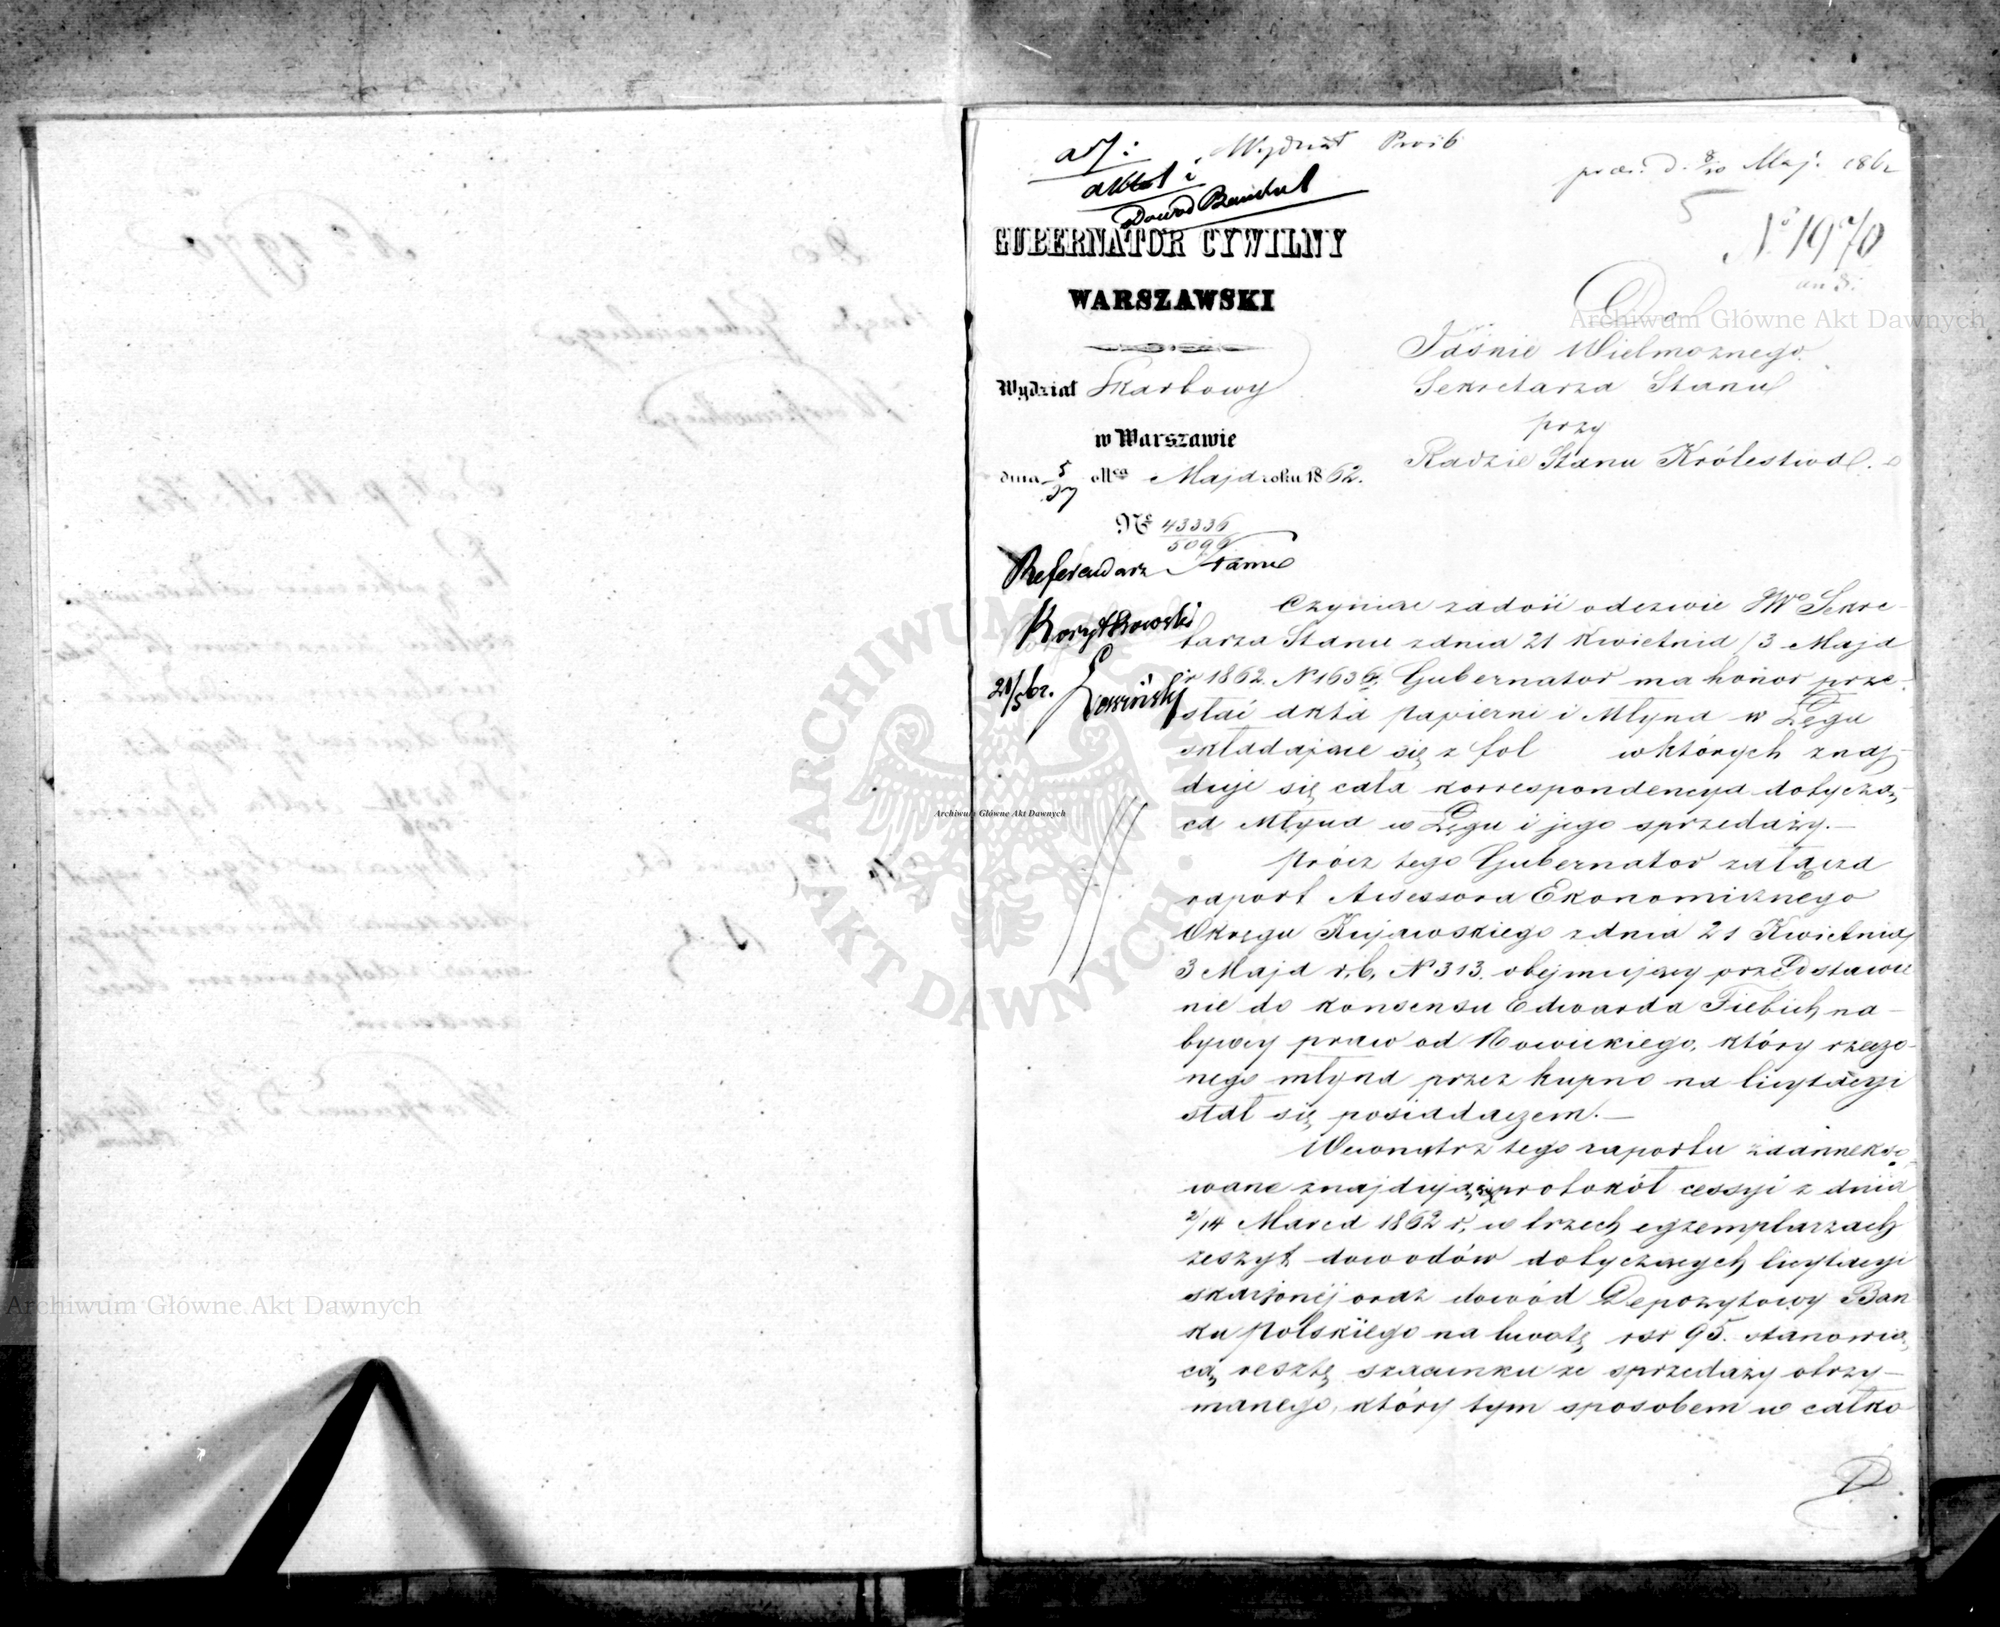 Wydział Próśb
akta i
Dowód Banku
praes. d. 8/20 Maj. 1862
5
N° 1970
GUBERNATOR CYWILNY
WARSZAWSKI
Wydział Skarbowy
w Warszawie
dnia 5/17 Mca Maja roku 1862.
N° 43336/5099
Do
Jaśnie Wielmożnego
Sekretarza Stanu
przy
Radzie Stanu Królestwa
Referendarz Stanu
Korytkowski
21/5 62.
Czyniąc zadość odezwie JWo Sekre-
tarza Stanu z dnia 21 Kwietnia / 3 Maja
r 1862. N 1636. Gubernator ma honor prze-
słać akta papierni i Młyna w Łęgu
składające się z fol w których znaj-
duje się cała korrespondencya dotyczą-
ca Młyna w Łęgu i jego sprzedaży.—
Prócz tego Gubernator załącza
raport Assessora Ekonomicznego
Okręgu Kujawskiego z dnia 21 Kwietnia
3 Maja r. b. N 313. obejmujący przedstawie
nie do konsensu Edwarda Fiebich na-
bywcy praw od Nowickiego, który rzeczo-
nego młyna przez kupno na licytacyi
stał się posiadaczem.—
Wewnątrz tego raportu zaannekso-
wane znajdują się protokół cessyi z dnia
2/14 Marca 1862 r. w trzech egzemplarzach
zeszyt dowodów dotyczących licytacyi
skarżonéj oraz dowód Depozytowy Ban
ku Polskiego na kwotę rsr 95. stanowią-
cą resztę szacunku ze sprzedaży otrzy-
manego, który tym sposobem w całko
Archiwum Główne Akt Dawnych
Archiwum Główne Akt Dawnych
Archiwum Główne Akt Dawnych
ARCHIWUM GŁÓWNE AKT DAWNYCH